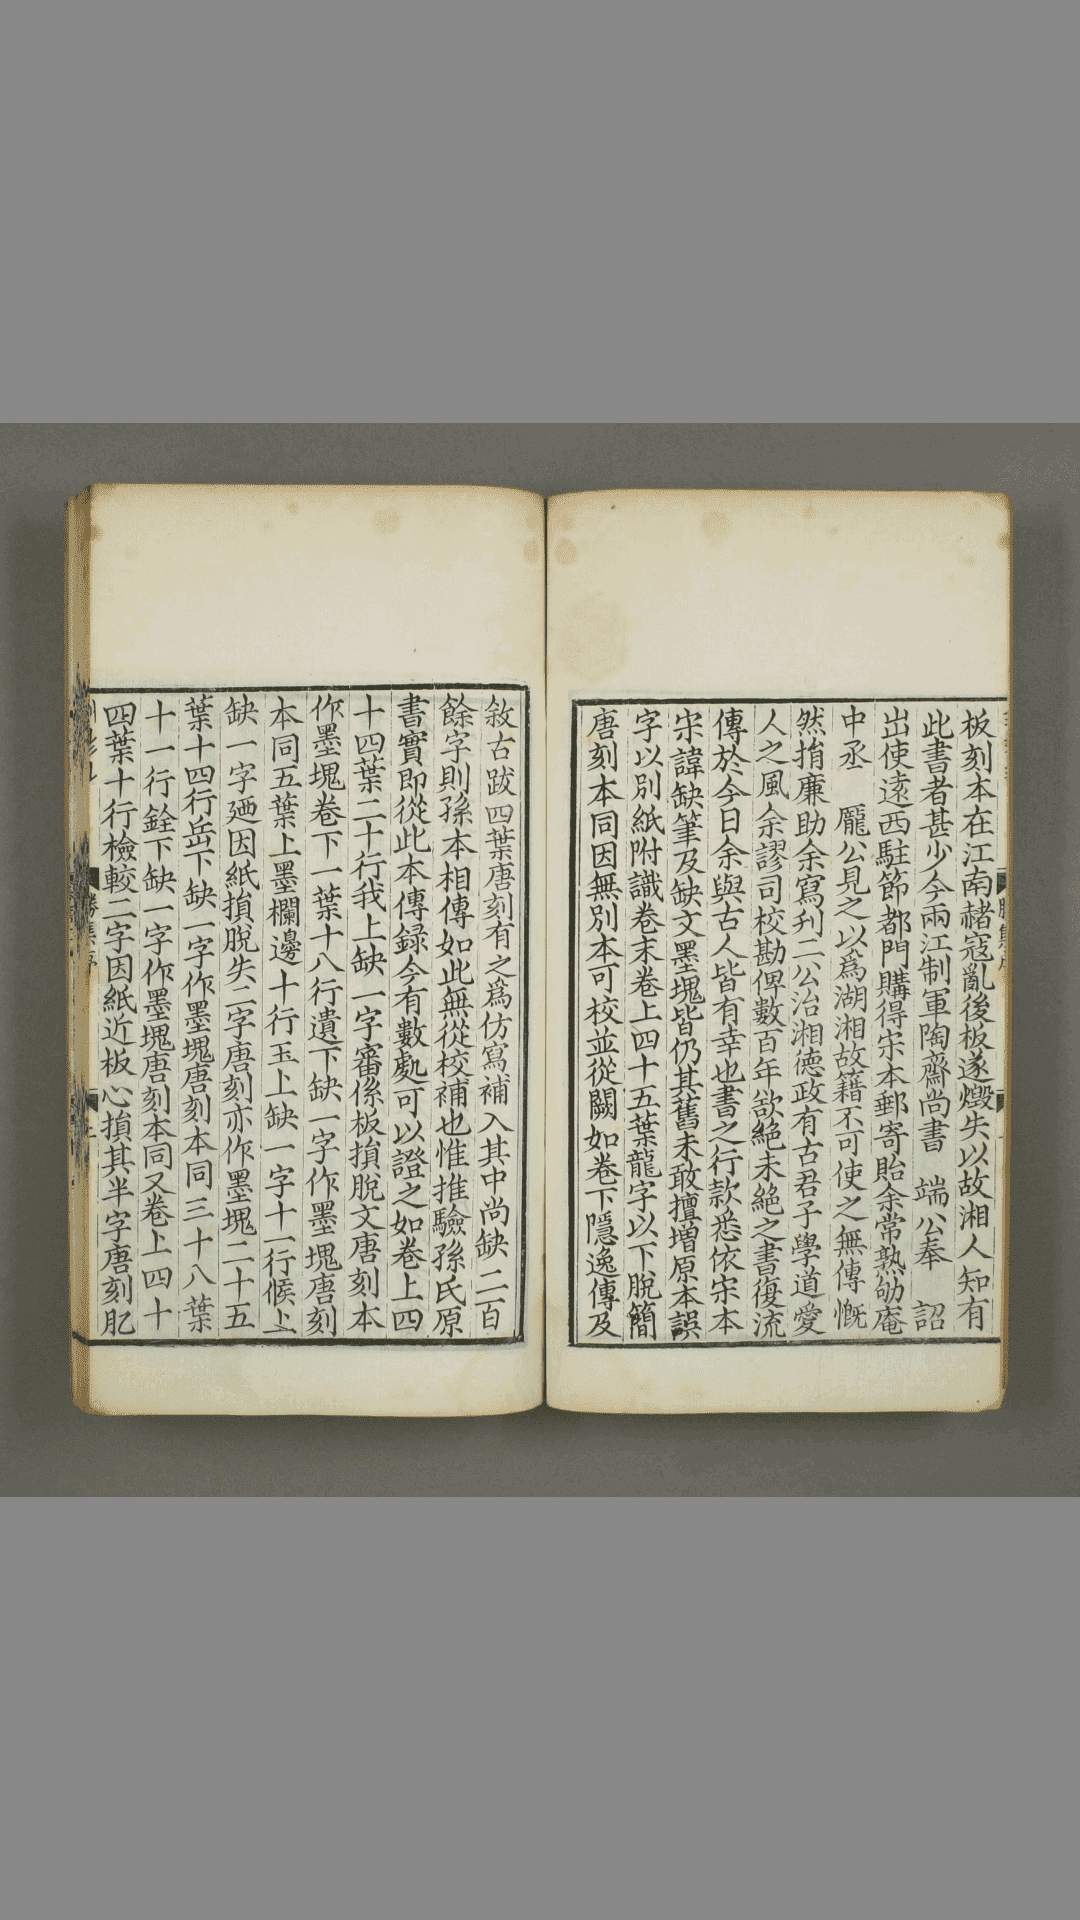 板刻本在江南赭寇亂後板遂燬失以故湘人知有
此書者甚少今兩江制軍陶齋尚書　端公奉　詔
出使遠西駐節都門購得宋本郵寄貽余常熟劬庵
中丞　龎公見之以爲湖湘故籍不可使之無傳慨
然捐廉助余寫刋二公治湘德政有古君子學道愛
人之風余謬司校勘俾數百年欲絕未絕之書復流
傳於今日余與古人皆有幸也書之行款悉依宋本
宋諱缺筆及缺文墨塊皆仍其舊未敢擅增原本誤
字以別紙附識卷末卷上四十五葉龍字以下脫簡
唐刻本同因無別本可校並從闕如卷下隱逸傳及
敘古跋四葉唐刻有之爲仿寫補入其中尚缺二百
餘字則孫本相傳如此無從校補也惟推驗孫氏原
書實即從此本傳錄今有數處可以證之如卷上四
十四葉二十行我上缺一字審係板損脫文唐刻本
作墨塊卷下一葉十八行遺下缺一字作墨塊唐刻
本同五葉上墨欄邊十行玉上缺一字十一行候上
缺一字廼因紙損脫失二字唐刻亦作墨塊二十五
葉十四行岳下缺一字作墨塊唐刻本同三十八葉
十一行銓下缺一字作墨塊唐刻本同又卷上四十
四葉十行檢較二字因紙近板心損其半字唐刻肊